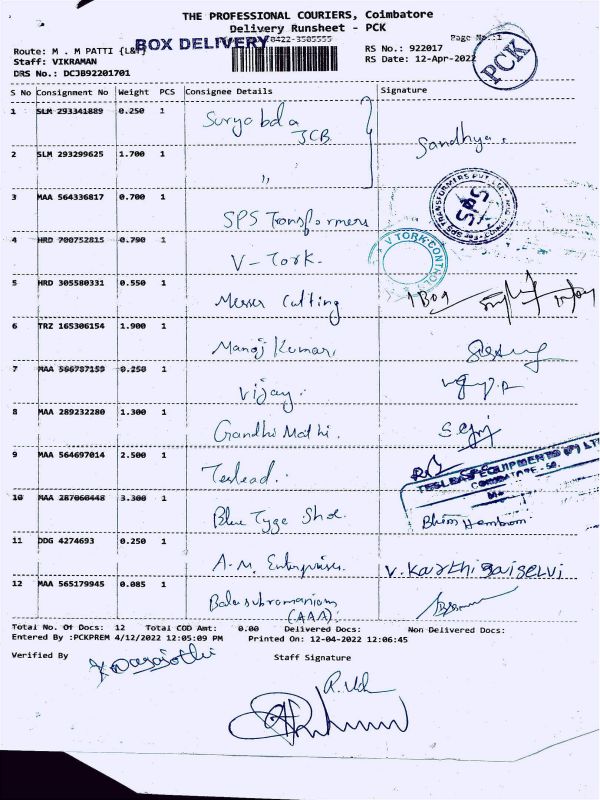 THE PROFESSIONAL COURIERS, Coimbatore
Delivery Runsheet - PCK
BOX DELIVERY 0422-3585555 Page No.:1
Route: M . M PATTI {L&T} RS No.: 922017
Staff: VIKRAMAN RS Date: 12-Apr-2022
DRS No.: DCJB92201701
PCK
S No Consignment No Weight PCS Consignee Details Signature
1 SLM 293341889 0.250 1 Suryabala JCB Sandhya.
2 SLM 293299625 1.700 1 "
3 MAA 564336817 0.700 1 SPS Transformers SPS
4 HRD 700752815 0.790 1 V-Tork. V TORK CONTROL
5 HRD 305580331 0.550 1 Messer Cutting
6 TRZ 165306154 1.900 1 Manoj Kumar.
7 MAA 566787159 0.250 1 Vijay.
8 MAA 289232280 1.300 1 Gandhi Mathi.
9 MAA 564697014 2.500 1 Teslead.
TESLEAD EQUIPMENTS (P) LT
COIMBATORE - 50.
10 MAA 287060448 3.300 1 Blue Tyge Shoe Bhim Hembrom
11 DDG 4274693 0.250 1 A.M. Enterprises. V. Karthigaiselvi
12 MAA 565179945 0.085 1 Balasubramaniam
(AAA).
Total No. Of Docs: 12 Total COD Amt: 0.00 Delivered Docs: Non Delivered Docs:
Entered By :PCKPREM 4/12/2022 12:05:09 PM Printed On: 12-04-2022 12:06:45
Verified By Staff Signature